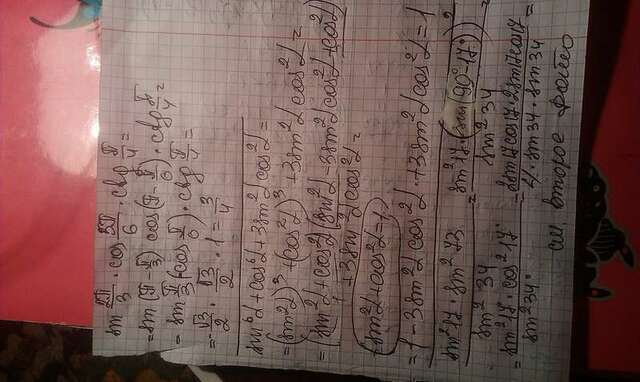 sin 2π/3 · cos 5π/6 · ctg π/4 =
= sin(π - π/3) · cos(π - π/6) · ctg π/4 =
= sin π/3 (-cos π/6) · ctg π/4 =
= -√3/2 · √3/2 · 1 = 3/4
sin⁶α + cos⁶α + 3sin²α cos²α =
= (sin²α)³ + (cos²α)³ + 3sin²α cos²α =
= (sin²α + cos²α)(sin²α - 3sin²α cos²α + cos²α)
+ 3sin²α cos²α =
(sin²α + cos²α = 1)
= 1 - 3sin²α cos²α + 3sin²α cos²α = 1
sin²17 · sin²73 / sin²34 = sin²17 · (sin(90° - 17°))² / sin²34 =
= sin²17 · cos²17° / sin²34° = sin17 cos17 · sin17 cos17 / 2 · sin34 · sin34 =
см. второе фото